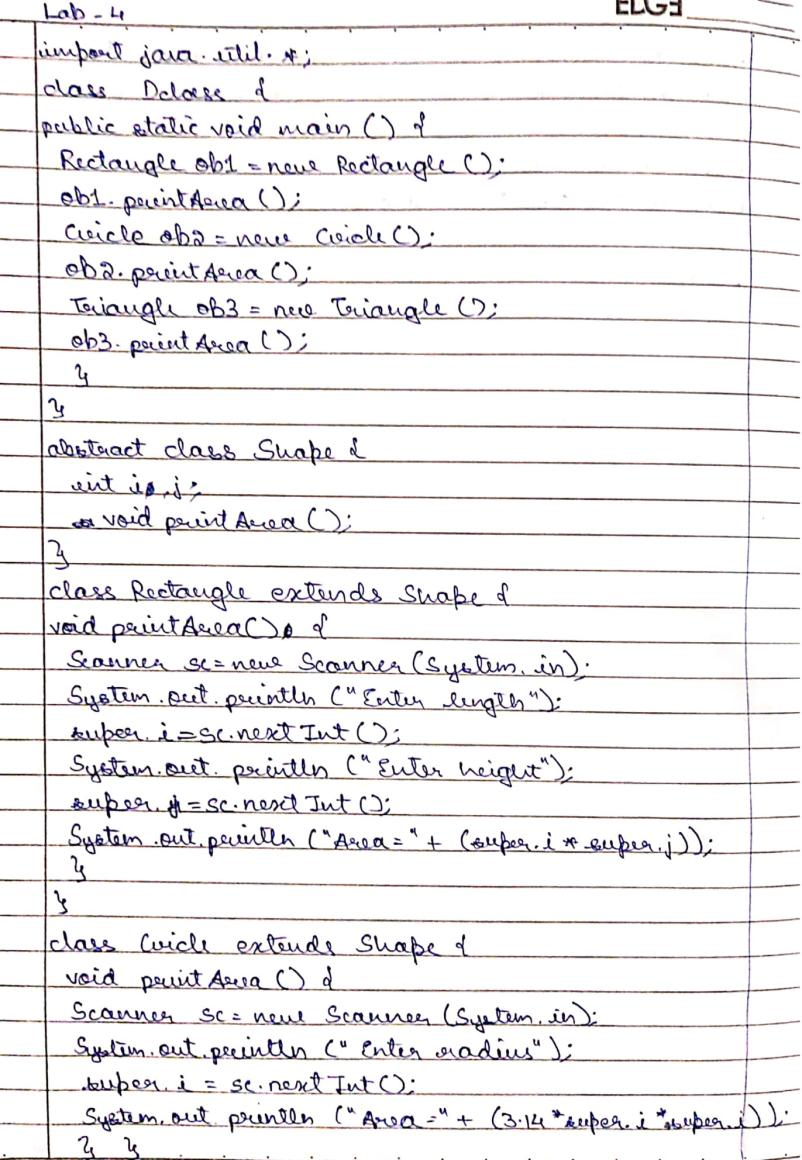 Lab - 4
import java.util.*;
class Dclass {
public static void main () {
Rectangle ob1 = new Rectangle ();
ob1. printArea ();
Circle ob2 = new Circle ();
ob2. print Area ();
Triangle ob3 = new Triangle ();
ob3. print Area ();
}
}
abstract class Shape {
int i, j;
void print Area ();
}
class Rectangle extends Shape {
void printArea() {
Scanner sc = new Scanner (System. in);
System. out. println ("Enter length");
super. i = sc. next Int ();
System. out. println ("Enter height");
super. j = sc. next Int ();
System. out. println ("Area=" + (super. i * super. j));
}
}
class Circle extends Shape {
void print Area () {
Scanner sc = new Scanner (System. in);
System. out. println (" Enter radius");
super. i = sc. next Int ();
System. out println ("Area=" + (3.14 * super. i * super. i));
} }